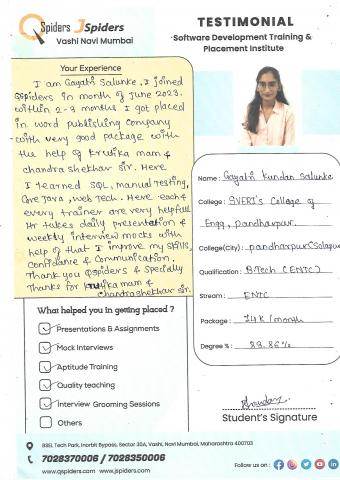 QSpiders JSpiders
Vashi Navi Mumbai
TESTIMONIAL
Software Development Training &
Placement Institute
Your Experience
I am Gayatri Salunke, I joined
Qspiders in month of June 2023.
within 2-3 months I got placed
in word publishing company
with very good package with
the help of Krutika mam &
chandrashekhar sir. Here
I learned SQL, Manual Testing,
Core Java, web Tech. Here each &
every trainer are very helpfull
Hr takes daily presentation &
weekly interview mocks with
help of that I improve my skills,
Confidance & Communication.
Thank you Qspiders & Specially
Thanks for Krutika mam &
Chandrashekhar sir.
Name : Gayatri Kundan Salunke
College : SVERI's College of
Engg, Pandharpur.
College(City) : pandharpur(Solapur
Qualification : BTech (ENTC)
Stream : ENTC
Package : 14K/month
Degree % : 83.86%
What helped you in getting placed ?
Presentations & Assignments
Mock Interviews
Aptitude Training
Quality teaching
Interview Grooming Sessions
Others
Student's Signature
BSEL Tech Park, Inorbit Bypass, Sector 30A, Vashi, Navi Mumbai, Maharashtra 400703
7028370006 / 7028350006
www.qspiders.com www.jspiders.com
Follow us on :